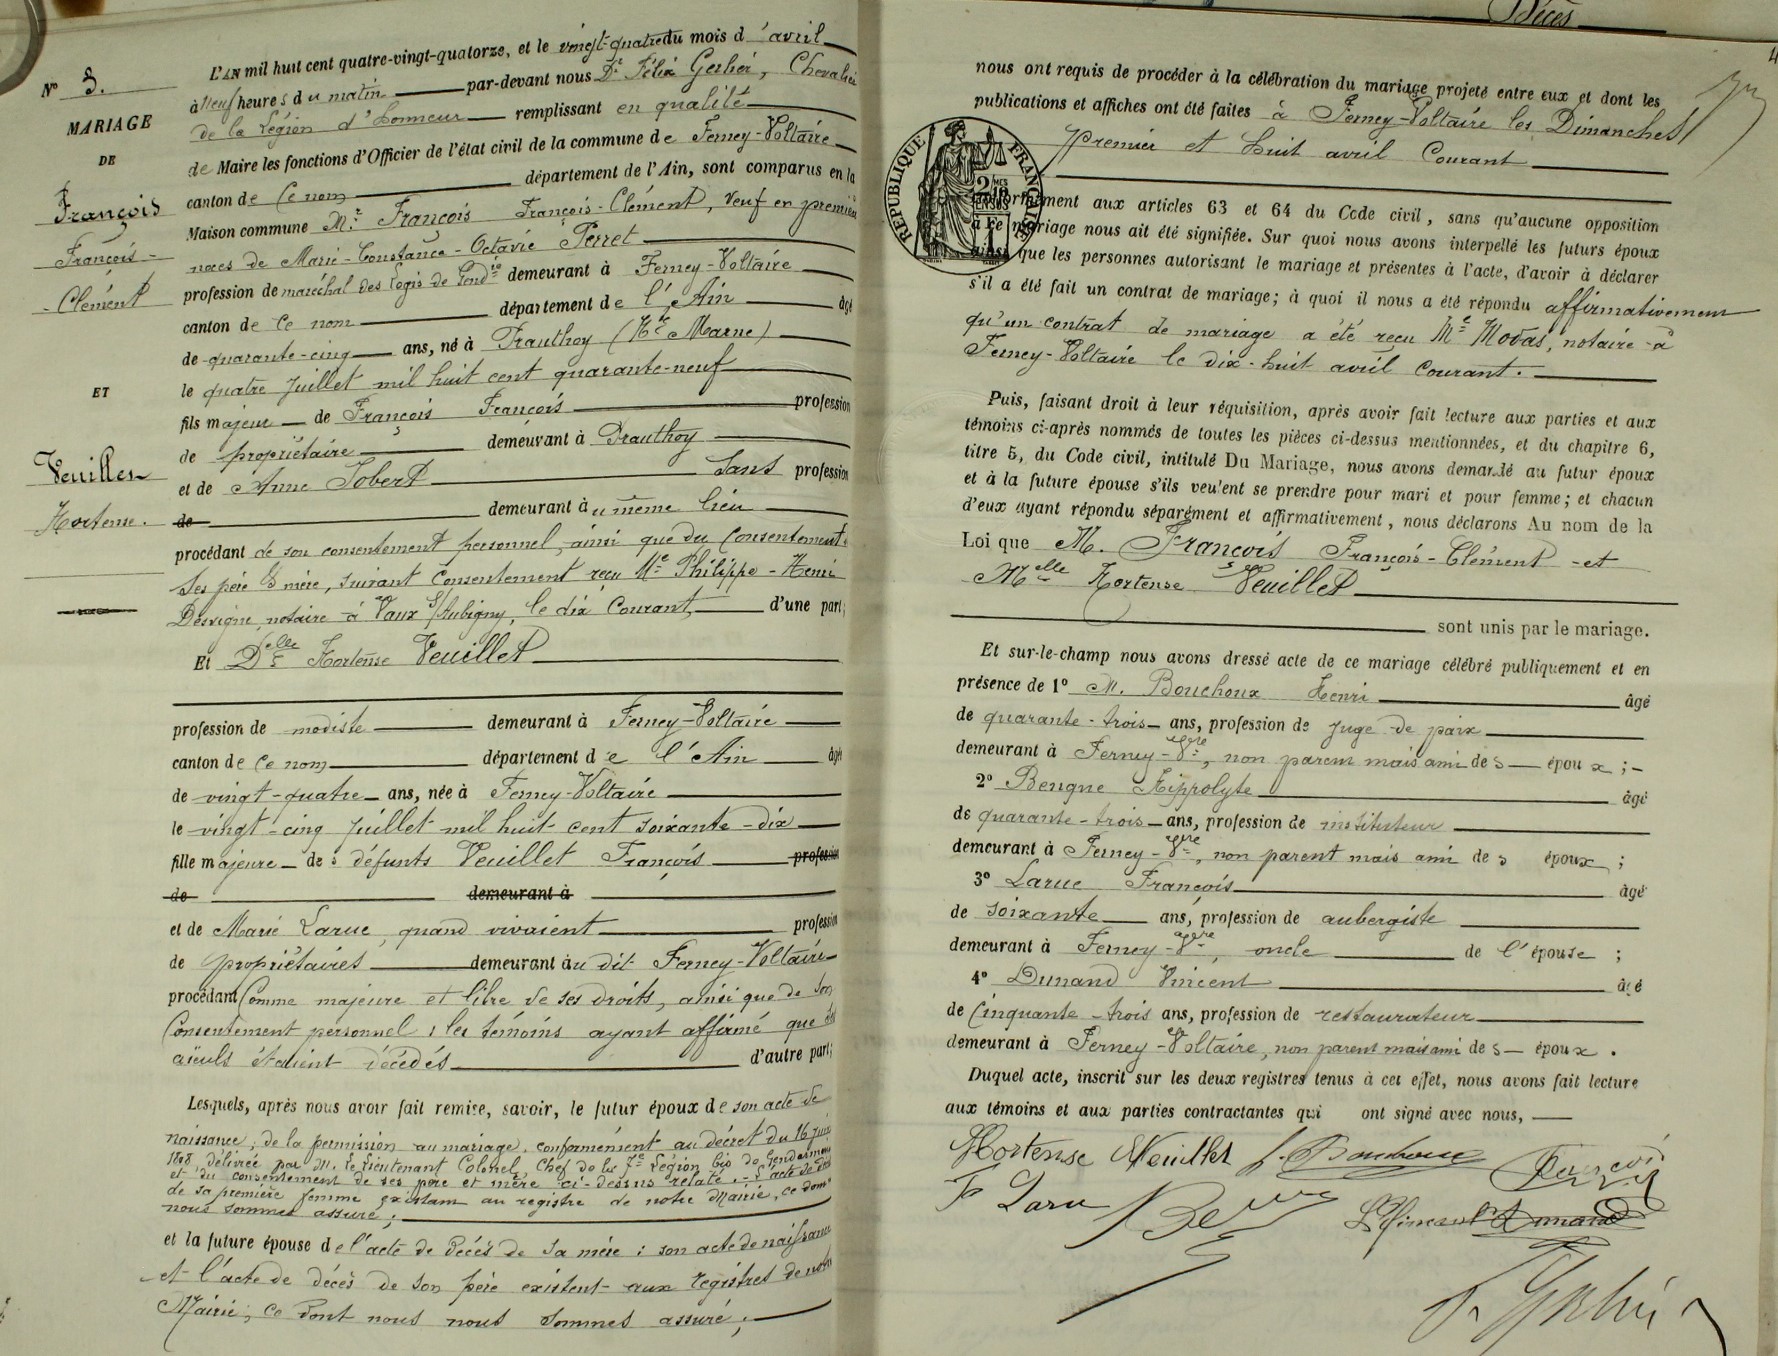 Décès
4
N° 3.
MARIAGE
DE
François
François-
-Clément
ET
Veuillet
Hortense.
L'AN mil huit cent quatre-vingt-quatorze, et le vingt-quatre du mois d'avril
à neuf heures du matin par-devant nous Dr. Félix Gerlier, Chevalier
de la Légion d'honneur remplissant en qualité
de Maire les fonctions d'Officier de l'état civil de la commune de Ferney-Voltaire
canton de ce nom département de l'Ain, sont comparus en la
Maison commune Mr. François François-Clément, veuf en premières
noces de Marie-Constance-Octavie Perret
profession de maréchal des logis de Gendrie demeurant à Ferney-Voltaire
canton de ce nom département de l'Ain âgé
de quarante-cinq ans, né à Prauthoy (Hte Marne)
le quatre juillet mil huit cent quarante-neuf
fils majeur de François François profession
de propriétaire demeurant à Prauthoy
et de Anne Jobert sans profession
de demeurant au même lieu
procédant de son consentement personnel, ainsi que du consentement de
ses père & mère, suivant consentement reçu Me Philippe-Henri
Desvigne, notaire à Vaux s/Aubigny, le dix courant, d'une part;
Et Delle Hortense Veuillet
profession de modiste demeurant à Ferney-Voltaire
canton de ce nom département de l'Ain âgée
de vingt-quatre ans, née à Ferney-Voltaire
le vingt-cinq juillet mil huit cent soixante-dix
fille majeure des défunts Veuillet François profession
de demeurant à
et de Marie Larue, quand vivaient profession
de propriétaires demeurant au dit Ferney-Voltaire
procédant comme majeure et libre de ses droits, ainsi que de son
consentement personnel; les témoins ayant affirmé que ses
aïeuls étaient décédés d'autre part;
Lesquels, après nous avoir fait remise, savoir, le futur époux de son acte de
naissance; de la permission au mariage, conformément au décret du 16 juin
1808, délivrée par M. le Lieutenant Colonel, Chef de la 7e Légion bis de Gendarmerie
et du consentement de ses père et mère ci-dessus relaté. - L'acte de décès
de sa première femme existant au registre de notre Mairie, ce dont
nous sommes assuré;
et la future épouse de l'acte de décès de sa mère; son acte de naissance
et l'acte de décès de son père existent aux registres de notre
Mairie, ce dont nous nous sommes assuré;
nous ont requis de procéder à la célébration du mariage projeté entre eux et dont les
publications et affiches ont été faites à Ferney-Voltaire les Dimanches
premier et huit avril courant
RÉPUBLIQUE FRANÇAISE
Conformément aux articles 63 et 64 du Code civil, sans qu'aucune opposition
à ce mariage nous ait été signifiée. Sur quoi nous avons interpellé les futurs époux
ainsi que les personnes autorisant le mariage et présentes à l'acte, d'avoir à déclarer
s'il a été fait un contrat de mariage; à quoi il nous a été répondu affirmativement
qu'un contrat de mariage a été reçu Me Movas, notaire à
Ferney-Voltaire le dix-huit avril courant.
Puis, faisant droit à leur réquisition, après avoir fait lecture aux parties et aux
témoins ci-après nommés de toutes les pièces ci-dessus mentionnées, et du chapitre 6,
titre 5, du Code civil, intitulé Du Mariage, nous avons demandé au futur époux
et à la future épouse s'ils veulent se prendre pour mari et pour femme; et chacun
d'eux ayant répondu séparément et affirmativement, nous déclarons Au nom de la
Loi que M. François François-Clément et
Melle Hortense Veuillet
sont unis par le mariage.
Et sur-le-champ nous avons dressé acte de ce mariage célébré publiquement et en
présence de 1° M. Bouchoux Henri âgé
de quarante-trois ans, profession de juge de paix
demeurant à Ferney-Vre, non parent mais ami des époux;
2° Bengne Hippolyte âgé
de quarante-trois ans, profession de instituteur
demeurant à Ferney-Vre, non parent mais ami des époux;
3° Larue François âgé
de soixante ans, profession de aubergiste
demeurant à Ferney-Vre, oncle de l'épouse;
4° Dunand Vincent âgé
de cinquante-trois ans, profession de restaurateur
demeurant à Ferney-Voltaire, non parent mais ami des époux.
Duquel acte, inscrit sur les deux registres tenus à cet effet, nous avons fait lecture
aux témoins et aux parties contractantes qui ont signé avec nous,
Hortense Veuillet
François
F Larue